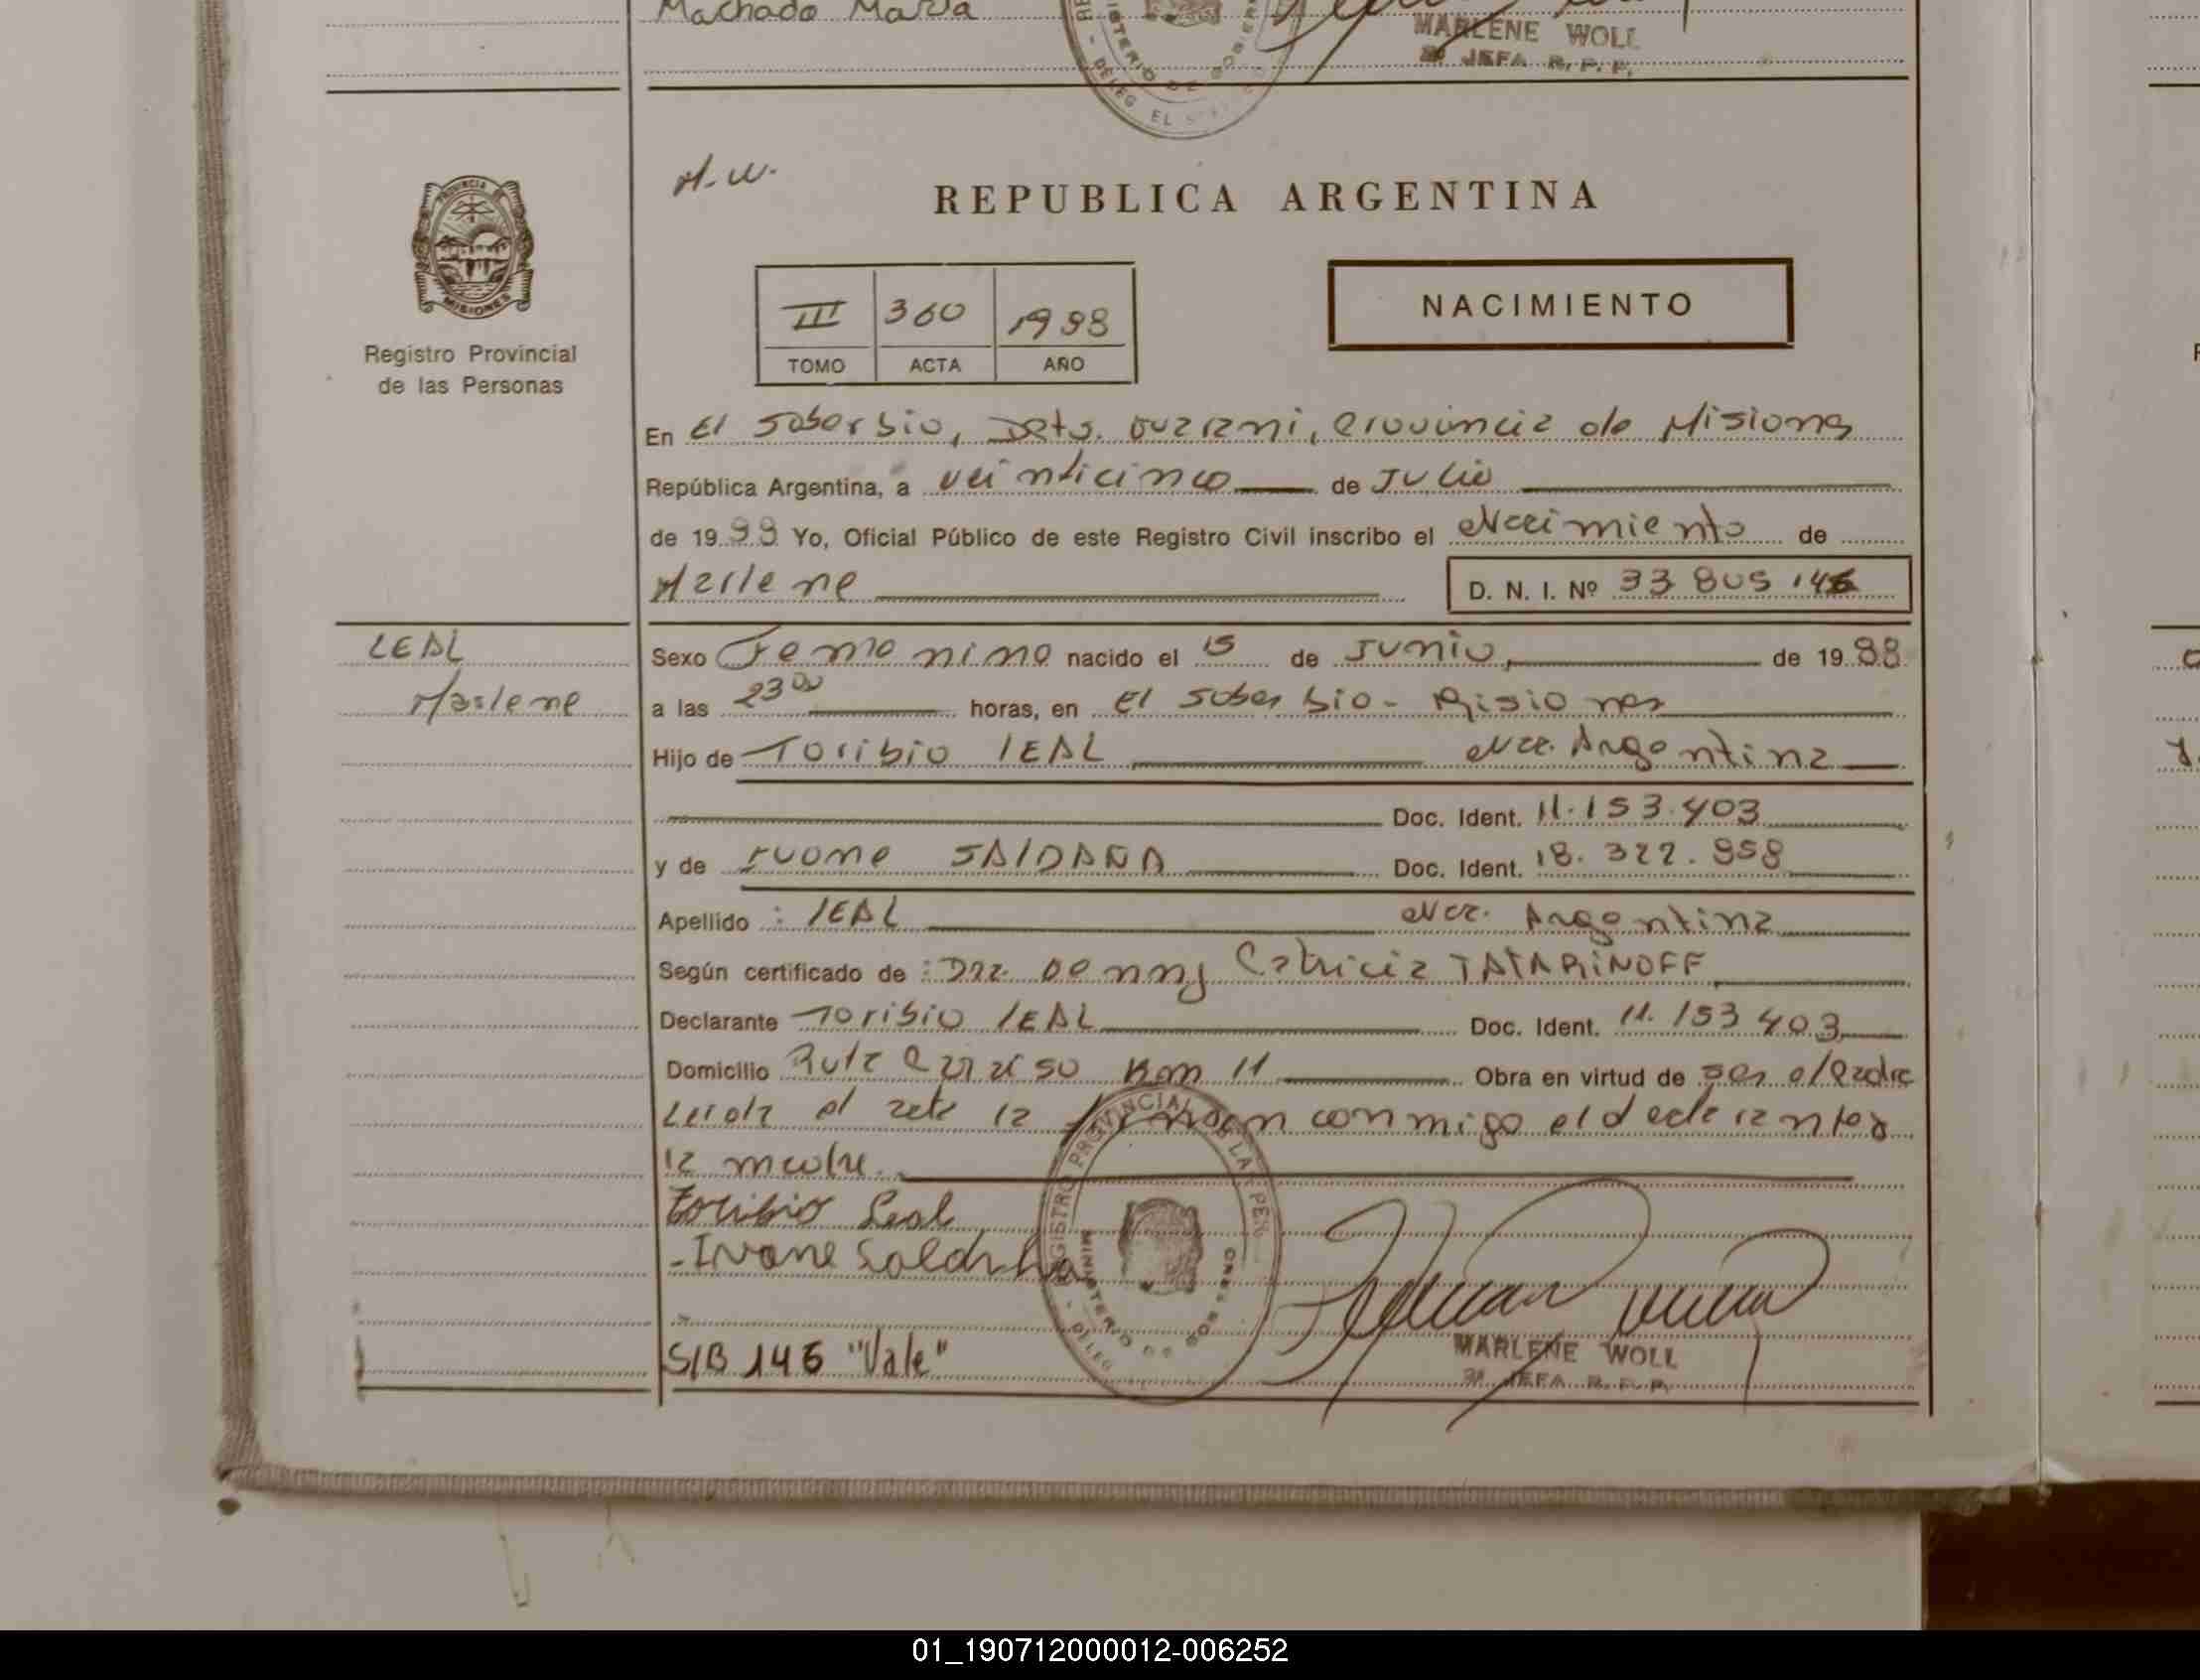 Machado Maria
MARLENE WOLL
JEFA R. P. P.
DELEG EL
M. W.
REPUBLICA ARGENTINA
PROVINCIA
MISIONES
Registro Provincial
de las Personas
III 360 1988
TOMO ACTA AÑO
NACIMIENTO
En El Soberbio, Dpto. Guarani, Provincia de Misiones
República Argentina, a veinticinco de Julio
de 19 88 Yo, Oficial Público de este Registro Civil inscribo el Nacimiento de
Marlene D. N. I. Nº 33 805 146
LEAL
Marlene
Sexo Femenino nacido el 15 de Junio, de 19 88
a las 23 00 horas, en El Soberbio - Misiones
Hijo de Toribio LEAL Nac. Argentina
Doc. Ident. 11.153.403
y de Ivone SALDAÑA Doc. Ident. 18.322.858
Apellido : LEAL Nac. Argentina
Según certificado de : Dra. Denny Patricia TATARINOFF
Declarante Toribio LEAL Doc. Ident. 11.153 403
Domicilio Ruta Paraiso Km 11 Obra en virtud de ser el Padre
Leida el acta la firman conmigo el declarante y
la madre.
Toribio Leal
- Ivone Saldanha
REGISTRO PROVINCIAL DE LA PER
MINISTERIO DE GOB
DELEG
S/B 146 "Vale"
MARLENE WOLL
JEFA R. P. P.
01_190712000012-006252